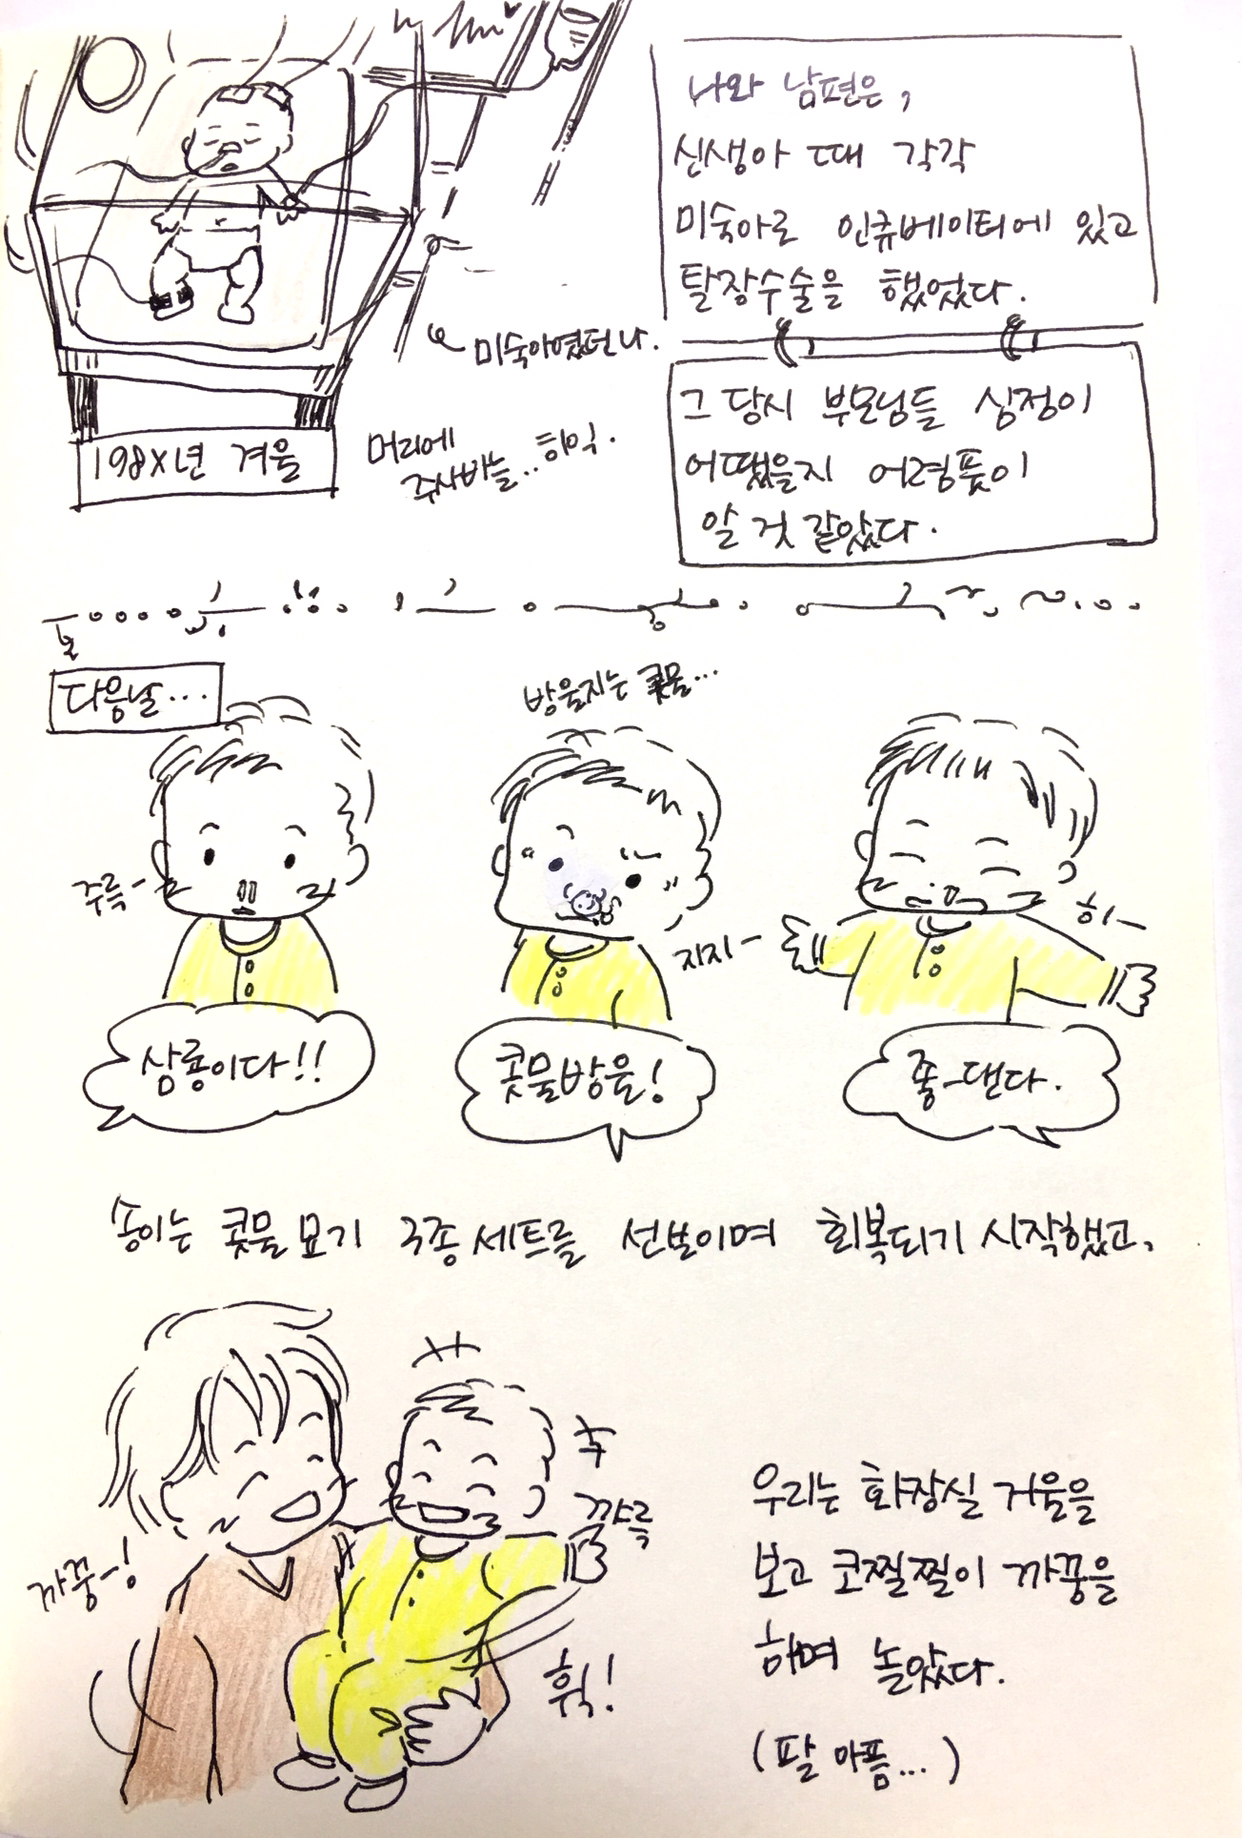 나와 남편은,
신생아 때 각각
미숙아로 인큐베이터에 있고
탈장수술을 했었다.
미숙아였던 나.
그 당시 부모님들 심정이
어땠을지 어렴풋이
알 것 같았다.
198X년 겨울
머리에
주사바늘.. 히익.
다음날...
방울지는 콧물...
주륵-
지지-
히-
삼룡이다!!
콧물방울!
좋-댄다.
송이는 콧물묘기 3종세트를 선보이며 회복되기 시작했고,
까꿍-!
까륵
훡!
우리는 화장실 거울을
보고 코찔찔이 까꿍을
하며 놀았다.
(팔 아픔...)